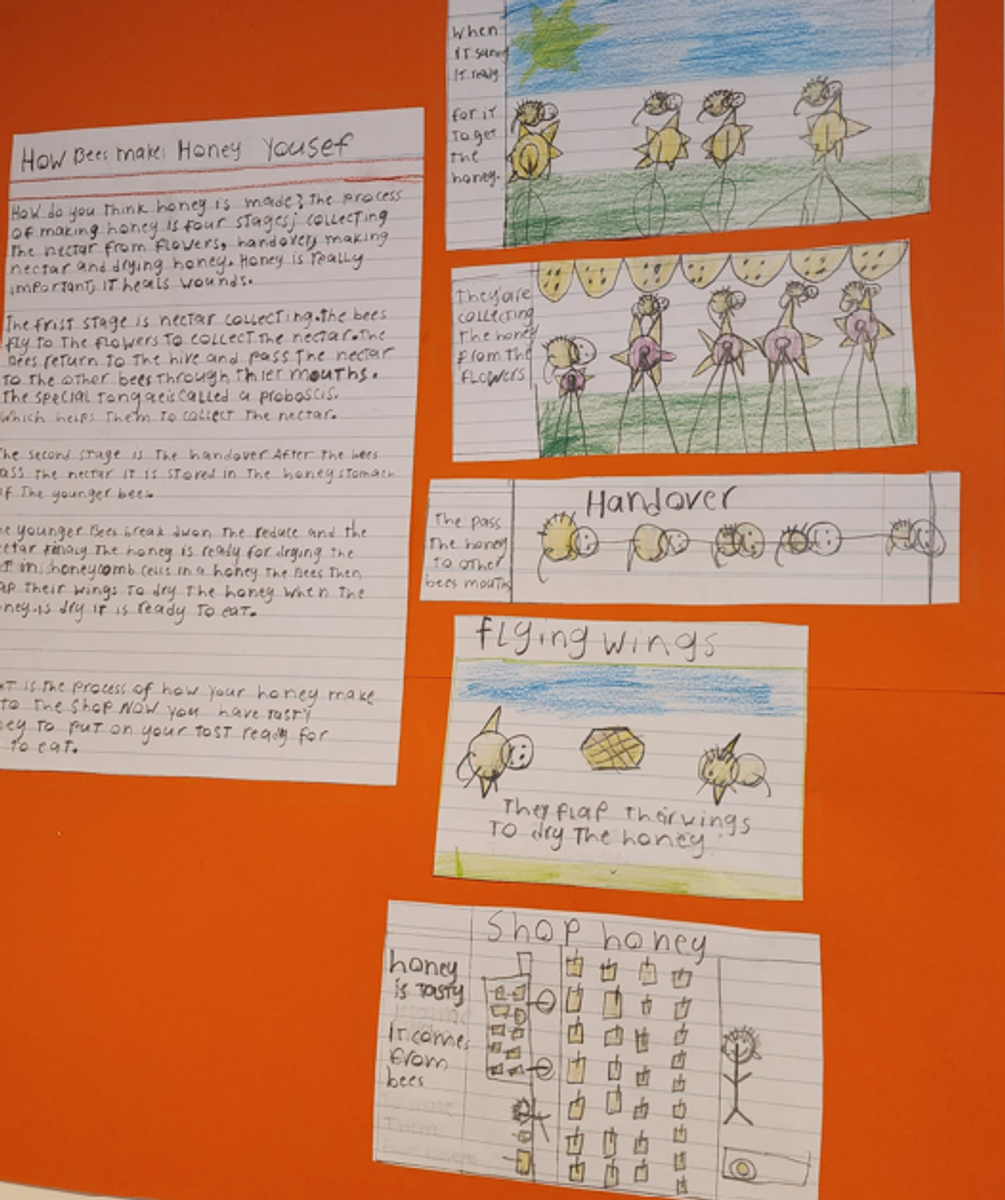 How Bees make Honey Yousef
How do you think honey is made? The process
of making honey is four stages; collecting
the nectar from flowers, handover, making
nectar and drying honey. Honey is really
important, it heals wounds.
The frist stage is nectar collecting. the bees
fly to the flowers to collect the nectar. the
bees return to the hive and pass the nectar
to the other bees through thier mouths.
the special tongue is called a proboscis.
which helps them to collect the nectar.
he second stage is the handover After the bees
ass the nectar it is stored in the honey stomach
f the younger bees.
e younger Bees break dwon the reduce and the
ctar the honey is ready for drying the
honeycomb cells in a honey the Bees then
ap their wings to dry the honey when the
ney is dry it is ready to eat.
at is the process of how your honey make
to the shop now you have tasty
ey to put on your tost ready for
to eat.
when
it sunny
it ready
for it
to get
the
honey.
They are
collecting
the honey
from the
flowers
Handover
The pass
the honey
to other
bees mouths
flying wings
They flap their wings
to dry the honey
Shop honey
honey
is tasty
it comes
from
bees